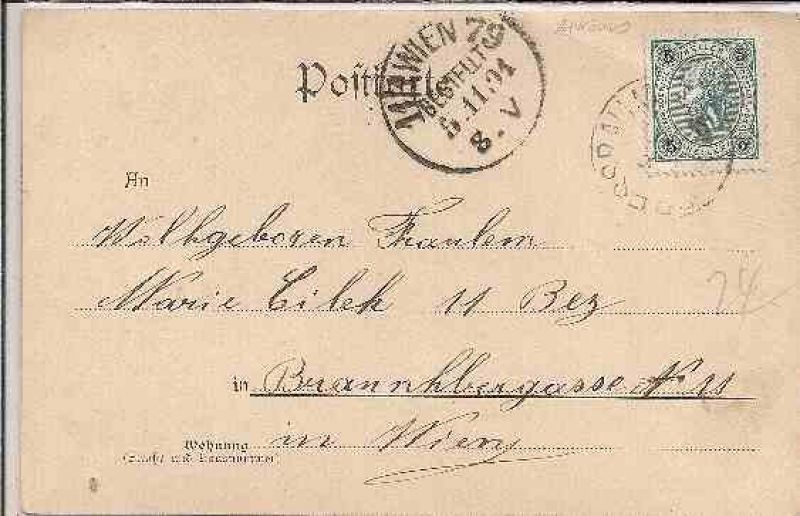 Postkarte
WIEN 79
BESTELLT
5.11.01
8.V
5 HELLER 5
5 5
An
Wolhgeboren Fraulein
Marie Cilek 11 Bez
24
in Braunhbergasse No 11
Wohnung
in Wien
(Straße und Hausnummer)